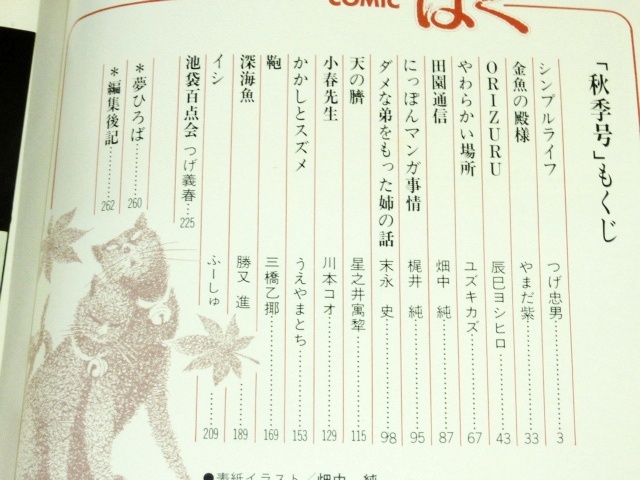 COMIC ばく
「秋季号」もくじ
シンプルライフ つげ忠男………3
金魚の殿様 やまだ紫………33
ORIZURU 辰巳ヨシヒロ………43
やわらかい場所 ユズキカズ………67
田園通信 畑中 純………87
にっぽんマンガ事情 梶井 純………95
ダメな弟をもった姉の話 末永 史………98
天の臍 星之井寓犂………115
小春先生 川本コオ………129
かかしとスズメ うえやまとち………153
鞄 三橋乙揶………169
深海魚 勝又 進………189
イシ ふーしゅ………209
池袋百点会 つげ義春………225
＊夢ひろば………260
＊編集後記………262
●表紙イラスト／畑中 純